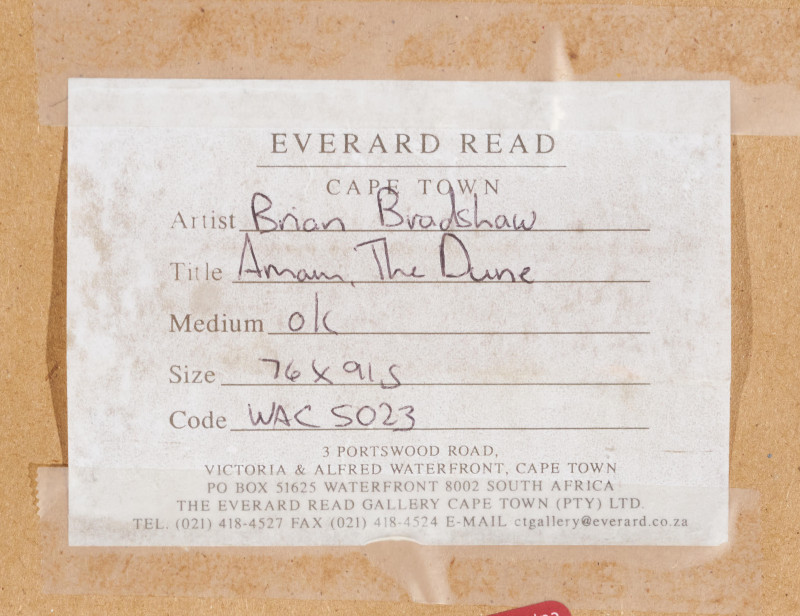 EVERARD READ
CAPE TOWN
Artist Brian Bradshaw
Title The Dune
Medium
Size 76 X 91
Code WAC 5023
3 PORTSWOOD ROAD,
VICTORIA & ALFRED WATERFRONT, CAPE TOWN
PO BOX 51625 WATERFRONT 8002 SOUTH AFRICA
THE EVERARD READ GALLERY CAPE TOWN (PTY) LTD.
TEL. (021) 418-4527 FAX (021) 418-4524 E-MAIL ctgallery@everard.co.za